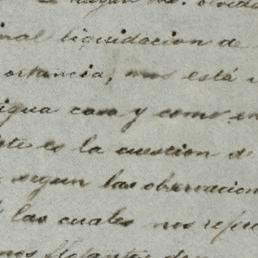 olvida
liquidacion de
ortancia, nos está
igua casa y como en
te es la cuestion d
segun las observacion
las cuales nos refe